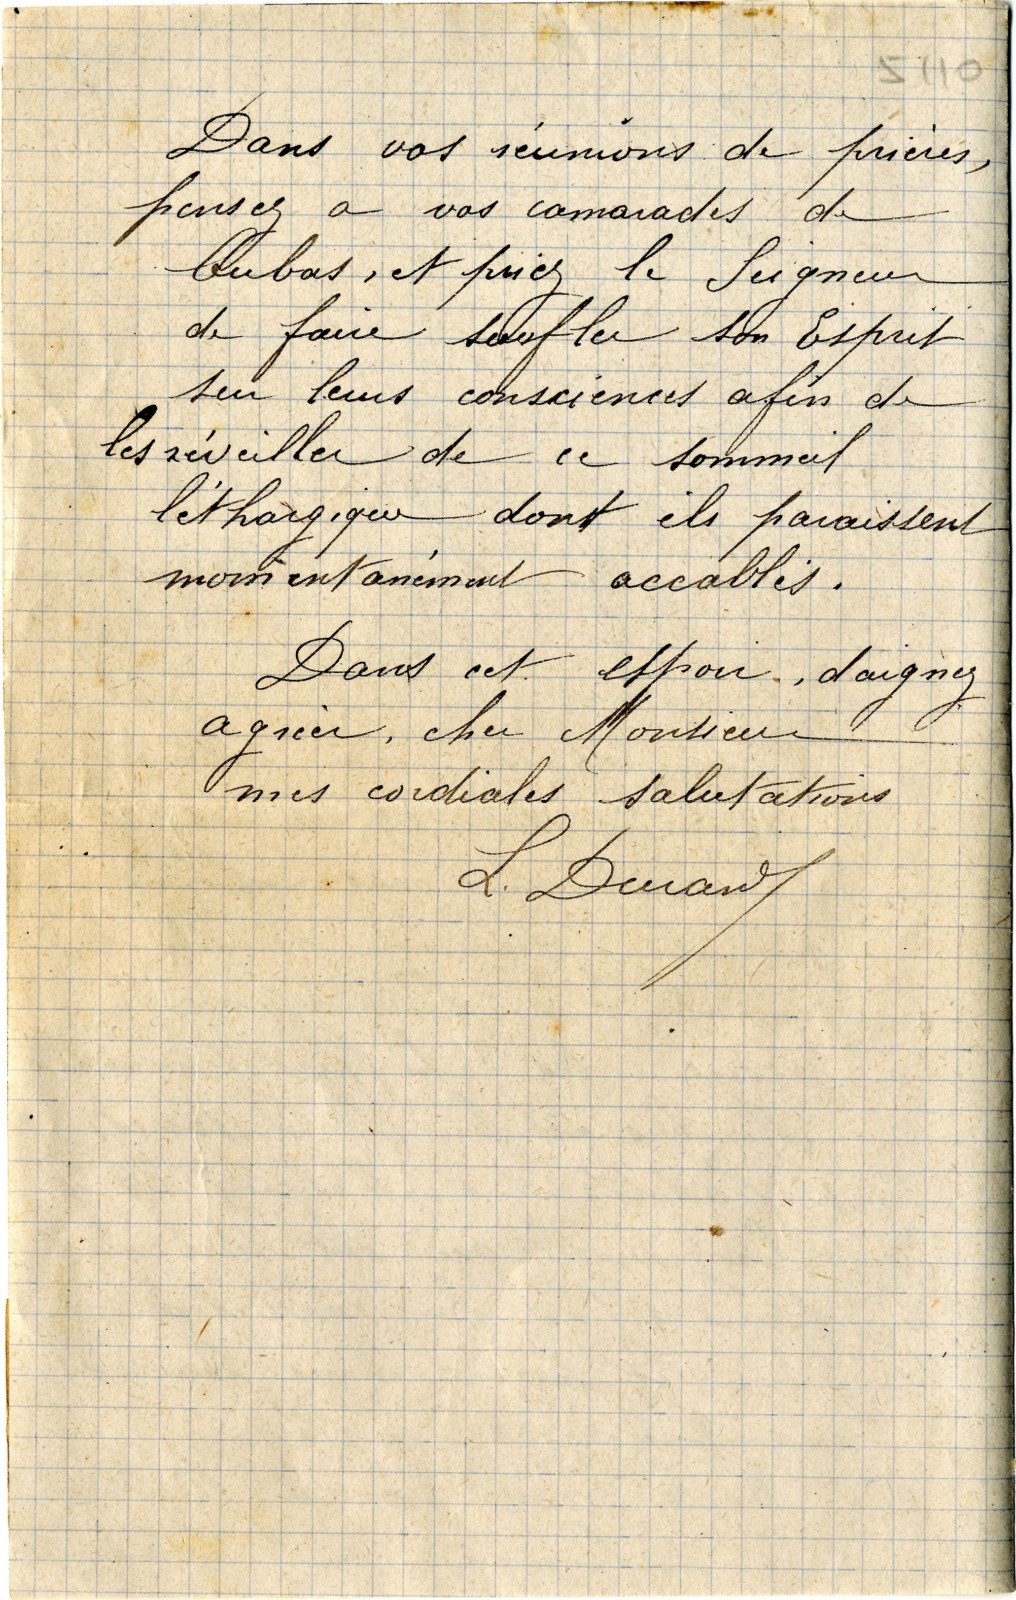 5110
Dans vos réunions de prières,
pensez a vos camarades de
Aubas, et priez le Seigneur
de faire souffler son Esprit
sur leurs consciences afin de
les réveiller de ce sommeil
léthargique dont ils paraissent
momentanément accablés.
Dans cet espoir, daignez
agréer, cher Monsieur
mes cordiales salutations
L. Durand